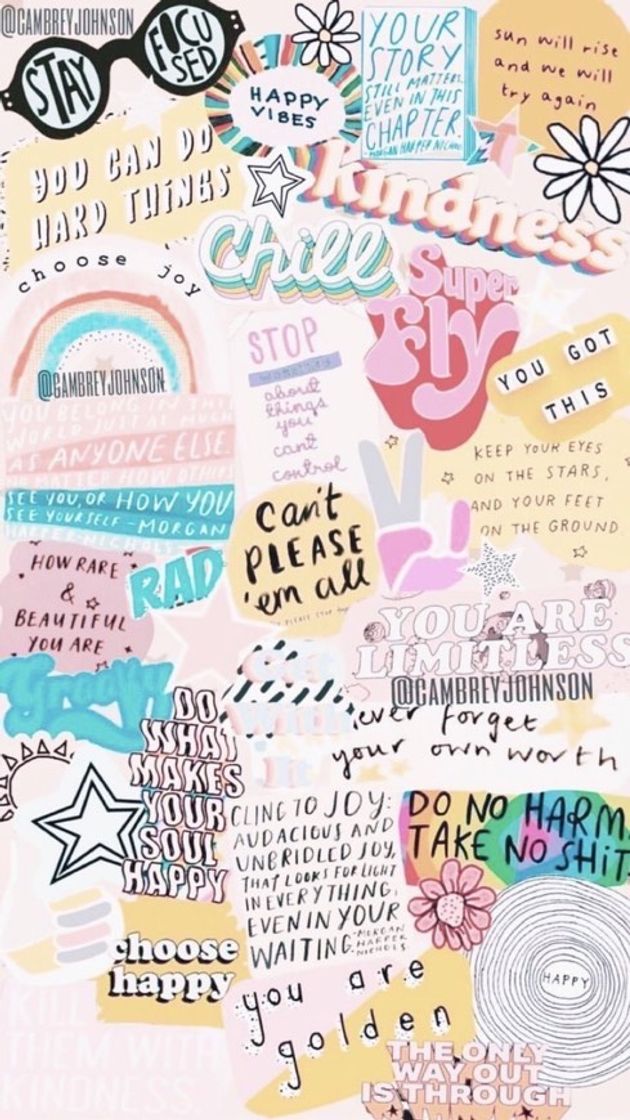 @CAMBREYJOHNSON
STAY
FOCU
SED
HAPPY
VIBES
YOUR
STORY
STILL MATTERS
EVEN IN THIS
CHAPTER.
sun will rise
and we will
try again
YOU CAN DO
HARD THINGS
kindness
choose joy
Chill
Super
Fly
@CAMBREYJOHNSON
STOP
about
things
you
can't
control
YOU GOT
THIS
YOU BELONG IN THIS
WORLD JUST AS MUCH
AS ANYONE ELSE.
NO MATTER HOW OTHERS
SEE YOU, OR HOW YOU
SEE YOURSELF - MORGAN
HARPER NICHOLS
KEEP YOUR EYES
ON THE STARS,
AND YOUR FEET
ON THE GROUND
can't
PLEASE
'em all
HOW RARE
&
BEAUTIFUL
YOU ARE
RAD
YOU ARE
LIMITLESS
@CAMBREYJOHNSON
Groovy
ever forget
your own worth
DO
WHAT
MAKES
YOUR
SOUL
HAPPY
CLING TO JOY:
AUDACIOUS AND
UNBRIDLED JOY,
THAT LOOKS FOR LIGHT
IN EVERYTHING,
EVEN IN YOUR
WAITING.
-MORGAN
HARPER
NICHOLS
DO NO HARM
TAKE NO SHiT
choose
happy
HAPPY
you are
golden
KILL
THEM WITH
KINDNESS
THE ONLY
WAY OUT
IS THROUGH